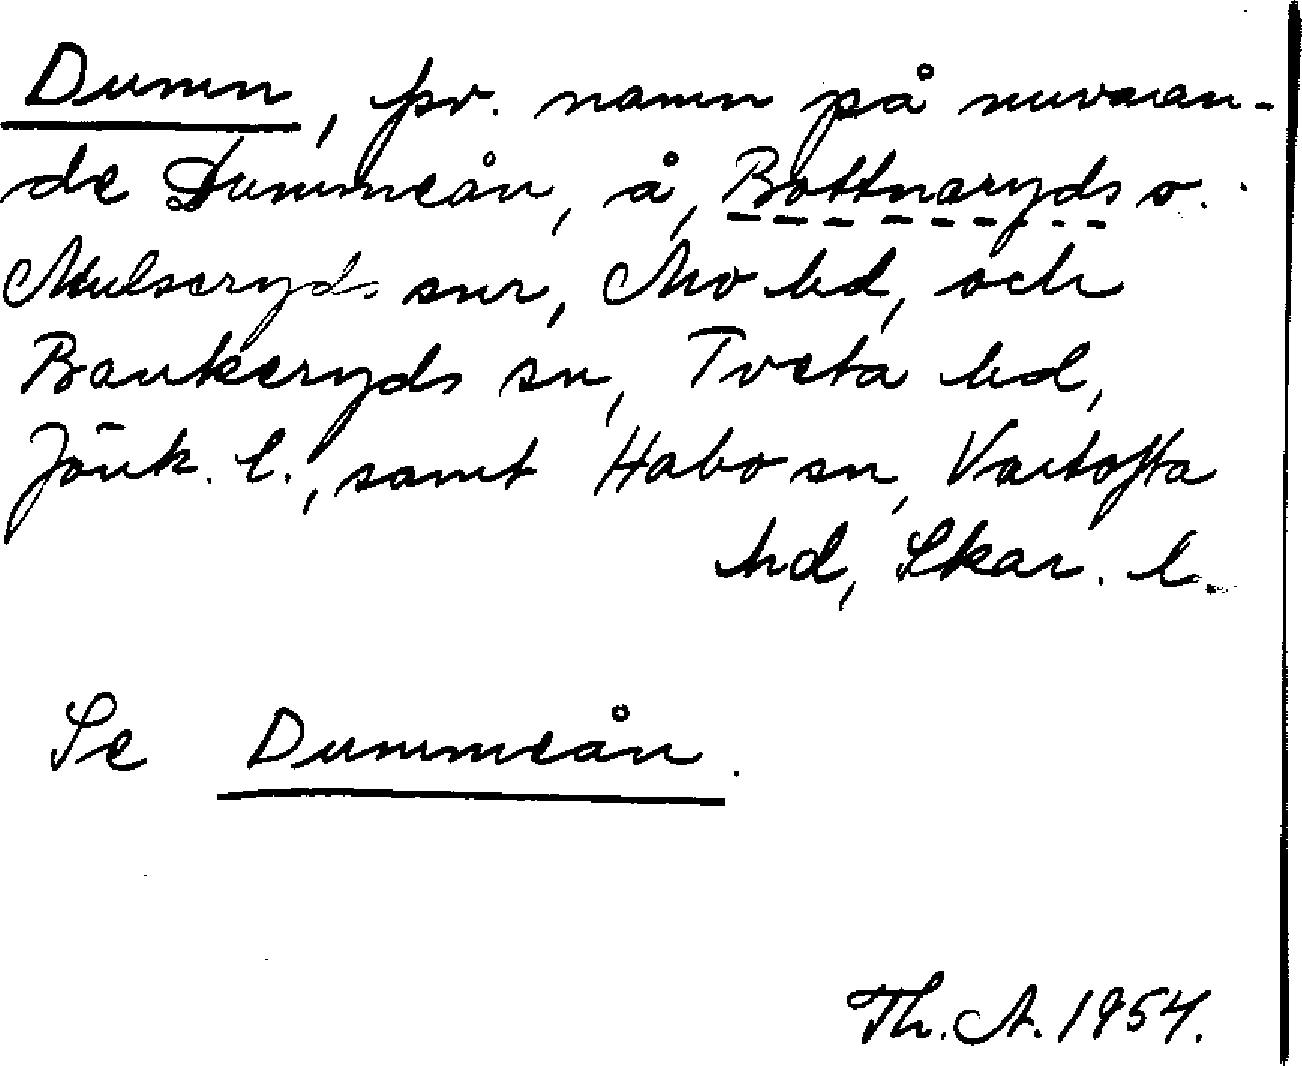 Dumn, fsv. namn på nuvaran-
de Dummeån, å, Bottnaryds o.
Mulseryds snr, Mo hd, och
Bankeryds sn, Tveta hd,
Jönk. l., samt Habo sn, Vartofta
hd, Skar. l.
Se Dummeån.
Th. A. 1954.